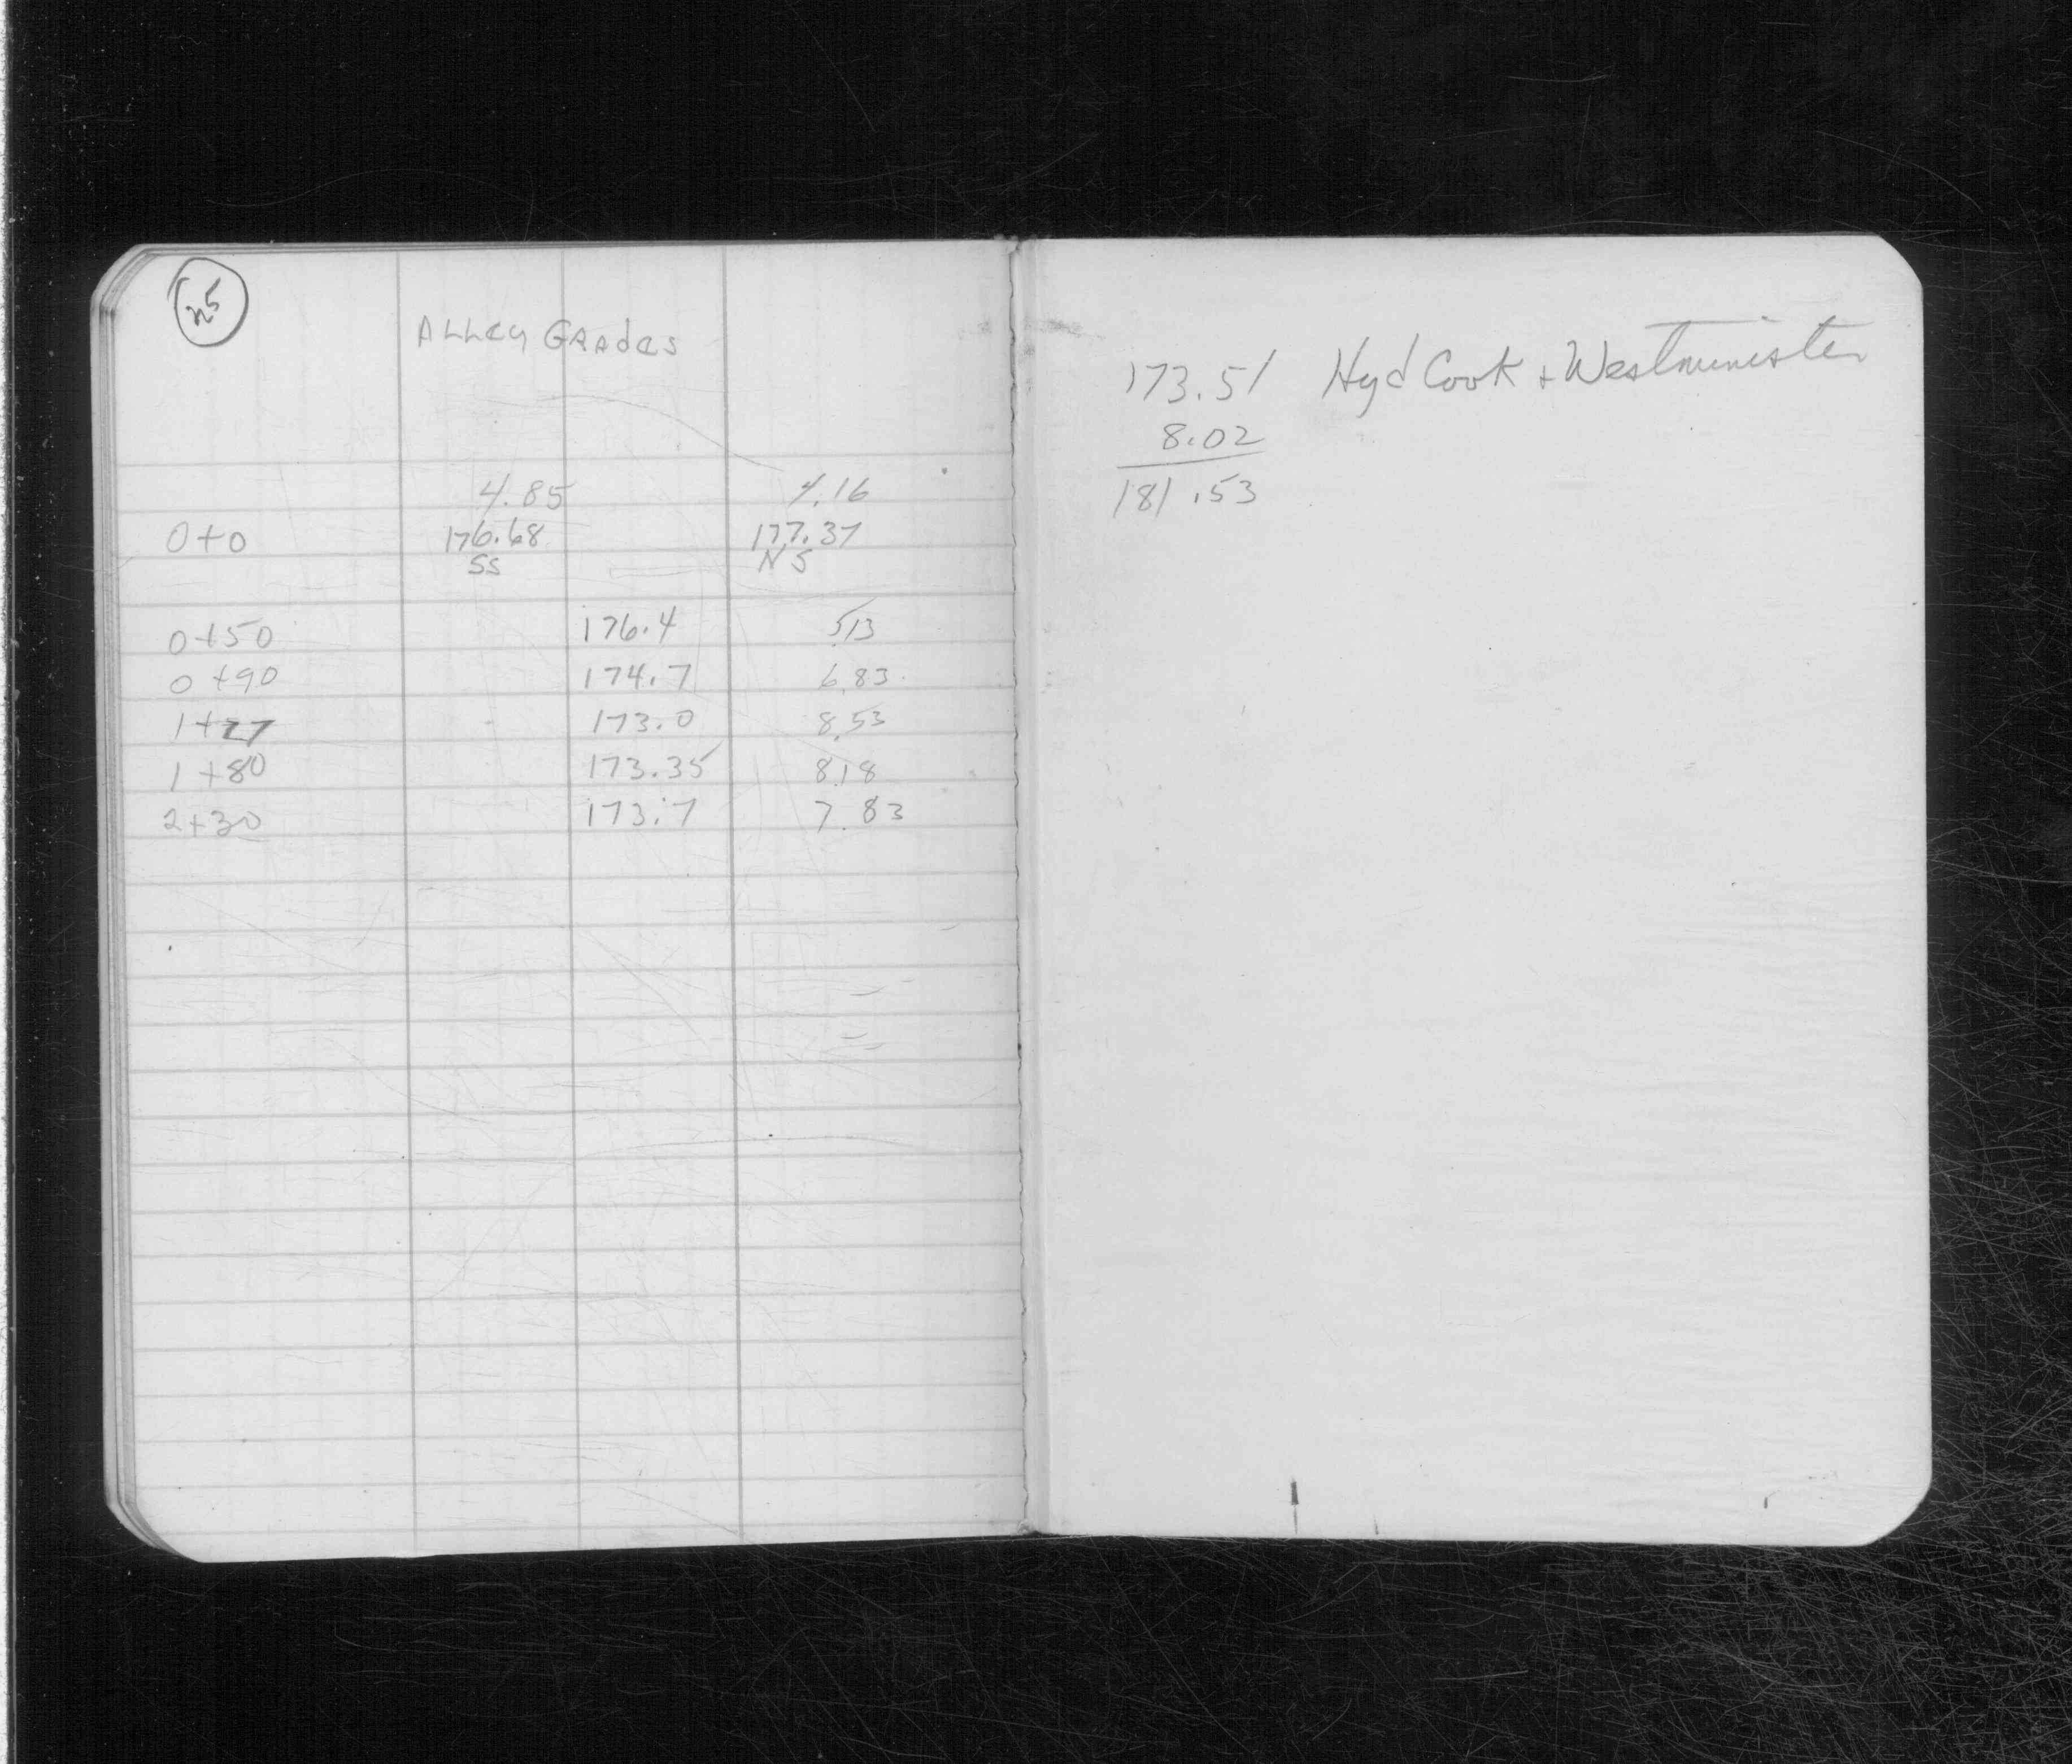 25
ALLey GRAdes
4.85 4.16
0+0 176.68 177.37
SS NS
0+50 176.4 5.13
0+90 174.7 6.83
1+27 173.0 8.53
1+80 173.35 8.18
2+30 173.7 7.83
173.51 Hyd Cook + Westminister
8.02
181.53